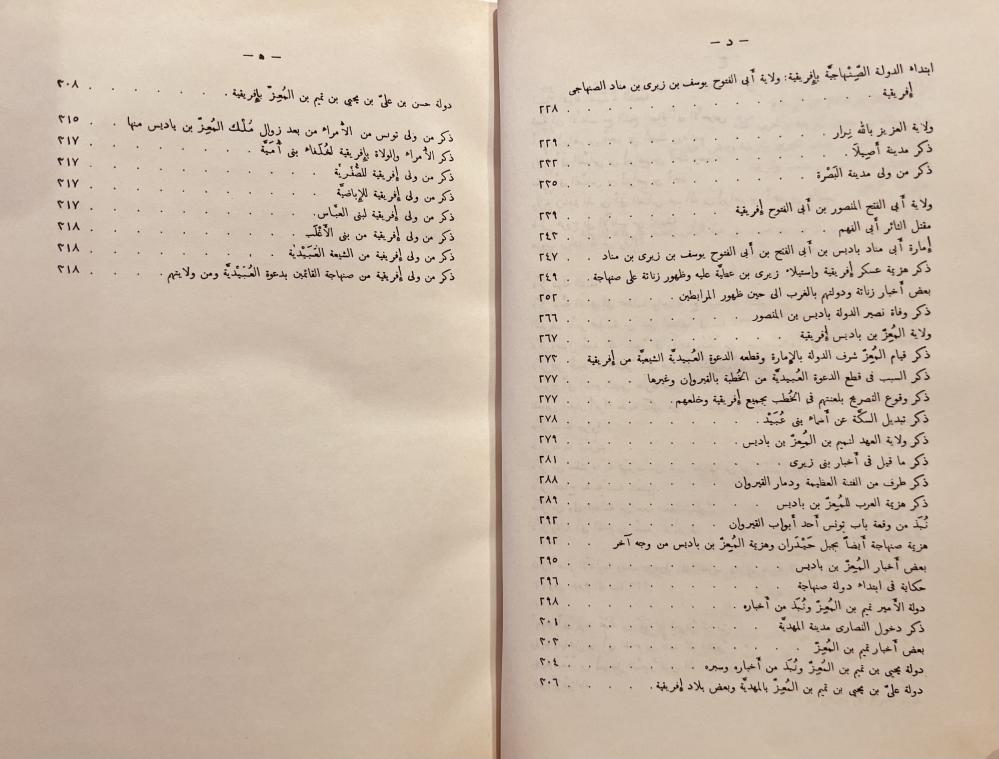 — د —
ابتداء الدولة الصِّنْهاجيّة بإفريقية: ولاية أبى الفتوح يوسف بن زيرى بن مناد الصنهاجى
إفريقية . . . . . . . . . . . . ٢٢٨
ولاية العزيز بالله نِزار . . . . . . . . . . ٢٢٩
ذكر مدينة أَصِيلَا . . . . . . . . . . ٢٣٢
ذكر من ولى مدينة البَصْرة . . . . . . . . . . ٢٣٥
ولاية أبى الفتح المنصور بن أبى الفتوح إفريقية . . . . . . . ٢٣٩
مقتل الثائر أبى الفهم . . . . . . . . . . ٢٤٣
إمارة أبى مناد باديس بن أبى الفتح بن أبى الفتوح يوسف بن زيرى بن مناد . . ٢٤٧
ذكر هزيمة عسكر إفريقية وإستيلاء زيرى بن عطيّة عليه وظهور زناتة على صنهاجة . . ٢٤٩
بعض أخبار زناتة ودولتهم بالغرب الى حين ظهور المرابطين . . . . . ٢٥٢
ذكر وفاة نصير الدولة باديس بن المنصور . . . . . . . . ٢٦٦
ولاية المُعِزّ بن باديس إفريقية . . . . . . . . . ٢٦٧
ذكر قيام المُعِزّ شرف الدولة بالإمارة وقطعه الدعوة العُبيديّة الشيعيّة من إفريقية . ٢٧٣
ذكر السبب فى قطع الدعوة العُبيديّة من الخُطبة بالقيروان وغيرها . . . . ٢٧٧
ذكر وقوع التصريح بلعنتهم فى الخُطب بجميع إفريقية وخلعهم . . . . . ٢٧٧
ذكر تبديل السكّة عن أسماء بنى عُبَيْد . . . . . . . . ٢٧٨
ذكر ولاية العهد لتميم بن المُعِزّ بن باديس . . . . . . . ٢٧٩
ذكر ما قيل فى أخبار بنى زيرى . . . . . . . . ٢٨١
ذكر طرف من الفتنة العظيمة ودمار القيروان . . . . . . . ٢٨٨
ذكر هزيمة العرب للمُعِزّ بن باديس . . . . . . . . ٢٨٩
نُبَذ من وقعة باب تونس أحد أبواب القيروان . . . . . . . ٢٩٢
هزيمة صنهاجة أيضاً بجبل حَيْدَران وهزيمة المُعِزّ بن باديس من وجه آخر . . ٢٩٢
بعض أخبار المُعِزّ بن باديس . . . . . . . . . ٢٩٥
حكاية فى ابتداء دولة صنهاجة . . . . . . . . . ٢٩٦
دولة الأمير تميم بن المُعِزّ ونُبَذ من أخباره . . . . . . . ٢٩٨
ذكر دخول النصارى مدينة المهديّة . . . . . . . . ٣٠١
بعض أخبار تميم بن المُعِزّ . . . . . . . . . ٣٠٣
دولة يحيى بن تميم بن المُعِزّ ونُبَذ من أخباره وسيره . . . . . . ٣٠٤
دولة علىّ بن يحيى بن تميم بن المُعِزّ بالمهديّة وبعض بلاد إفريقية . . . . ٣٠٦
— ه —
دولة حسن بن علىّ بن يحيى بن تميم بن المُعِزّ بإفريقية . . . . . . ٣٠٨
ذكر من ولى تونس من الأمراء من بعد زوال مُلْك المُعِزّ بن باديس منها . . ٣١٥
ذكر الأمراء والولاة بإفريقية لخُلَفاء بنى أُمَيَّة . . . . . . . ٣١٧
ذكر من ولى إفريقية للصُّفْريّة . . . . . . . . . ٣١٧
ذكر من ولى إفريقية للإباضيّة . . . . . . . . . ٣١٧
ذكر من ولى إفريقية لبنى العبّاس . . . . . . . . . ٣١٧
ذكر من ولى إفريقية من بنى الأَغْلَب . . . . . . . . ٣١٨
ذكر من ولى إفريقية من الشيعة العُبَيْديّة . . . . . . . . ٣١٨
ذكر من ولى إفريقية من صنهاجة القائمين بدعوة العُبَيْديّة ومن ولايتهم . . . . ٣١٨